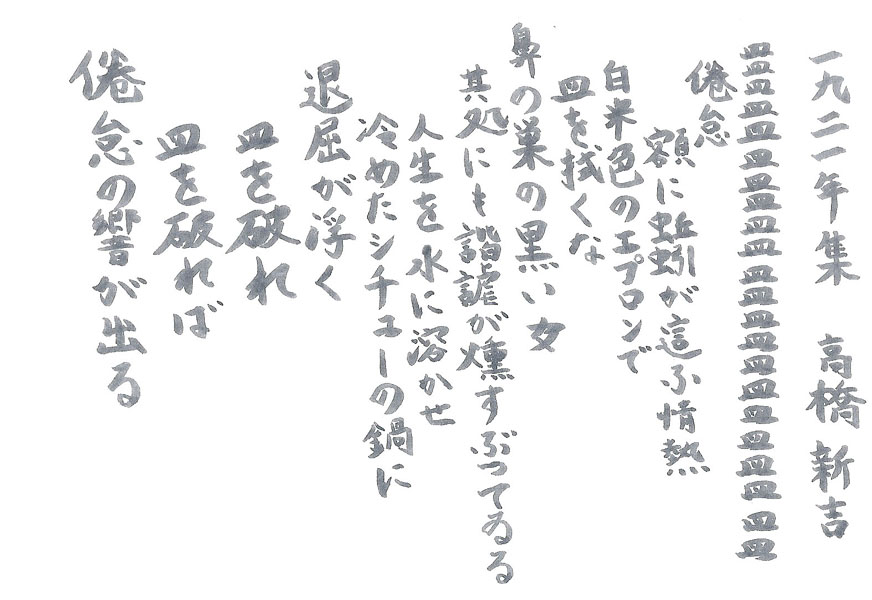 一九二一年集 高橋新吉
皿皿皿皿皿皿皿皿皿皿皿皿皿皿皿皿皿皿皿皿皿皿
倦怠
額に蚯蚓が這ふ情熱
白米色のエプロンで
皿を拭くな
鼻の巣の黒い女
其処にも諧謔が燻すぶつてゐる
人生を水に溶かせ
冷めたシチューの鍋に
退屈が浮く
皿を破れ
皿を破れば
倦怠の響が出る